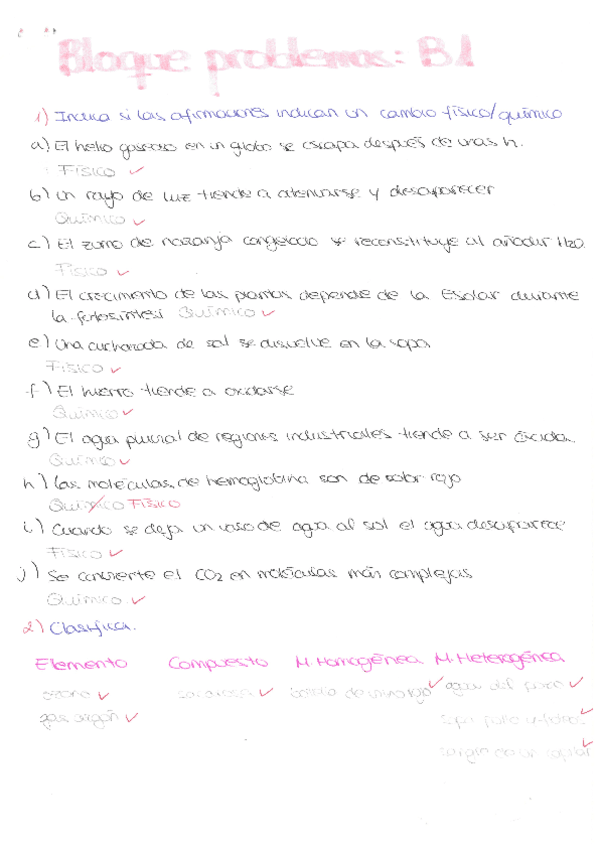 Bloque problemas: B1
1) Indica si las afirmaciones indican un cambio físico/químico
a) El helio gaseoso en un globo se escapa después de unas h.
Físico ✓
b) un rayo de luz tiende a atenuarse y desaparecer
Químico ✓
c) El zumo de naranja congelado se reconstituye al añadir H2O.
Físico ✓
d) El crecimiento de las plantas depende de la Esolar durante
la fotosíntesi Químico ✓
e) Una cucharada de sal se disuelve en la sopa
Físico ✓
f) El hierro tiende a oxidarse
Químico ✓
g) El agua pluvial de regiones industriales tiende a ser ácida.
Químico ✓
h) Las moléculas de hemoglobina son de color rojo
Químico Físico
i) Cuando se deja un vaso de agua al sol el agua desaparece
Físico ✓
j) Se convierte el CO2 en moléculas más complejas
Químico ✓
2) Clasifica.
Elemento Compuesto M. Homogénea M. Heterogénea
ozono ✓ sacarosa ✓ botella de vino rojo ✓ agua del ✓
gas argón ✓ sopa pollo y fideos ✓
sangre de un ✓